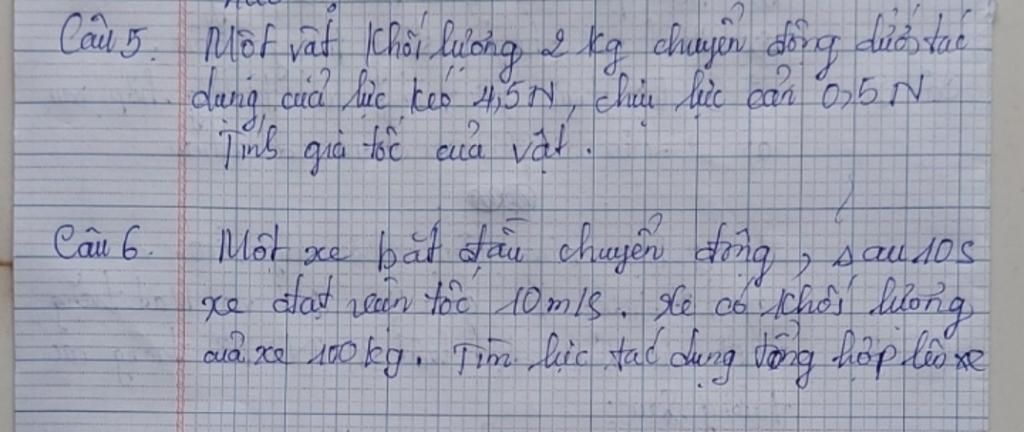 Câu 5. Một vật khối lượng 2 kg chuyển động dưới tác
dụng của lực kéo 4,5N, chịu lực cản 0,5N
Tính gia tốc của vật.
Câu 6. Một xe bắt đầu chuyển động, sau 10s
xe đạt vận tốc 10m/s. Xe có khối lượng
của xe 100kg. Tìm lực tác dụng tổng hợp lên xe